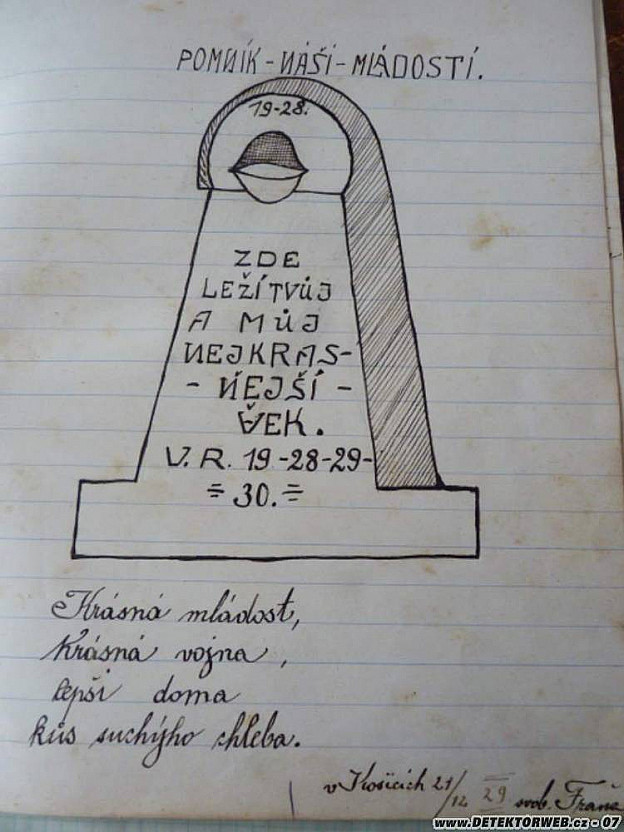 POMNÍK - NÁŠÍ - MLÁDOSTÍ.
19-28.
ZDE
LEŽÍ TVŮJ
A MŮJ
NEJKRAS-
- ŇEJŠÍ -
VĚK.
V. R. 19 -28-29-
= 30. =
Krásná mládost,
Krásná vojna,
lepší doma
kůs suchýho chleba.
v Košicích 21/12 29 svob. Fraňa
WWW.DETEKTORWEB.cz - 07